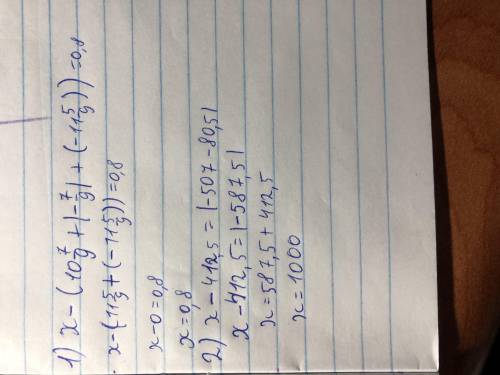 1) x-(10 7/9+|-7/9|+(-11 5/9))=0,8
x-(11 5/9+(-11 5/9))=0,8
x-0=0,8
x=0,8
2) x-412,5=|-507-80,5|
x-412,5=|-587,5|
x=587,5+412,5
x=1000